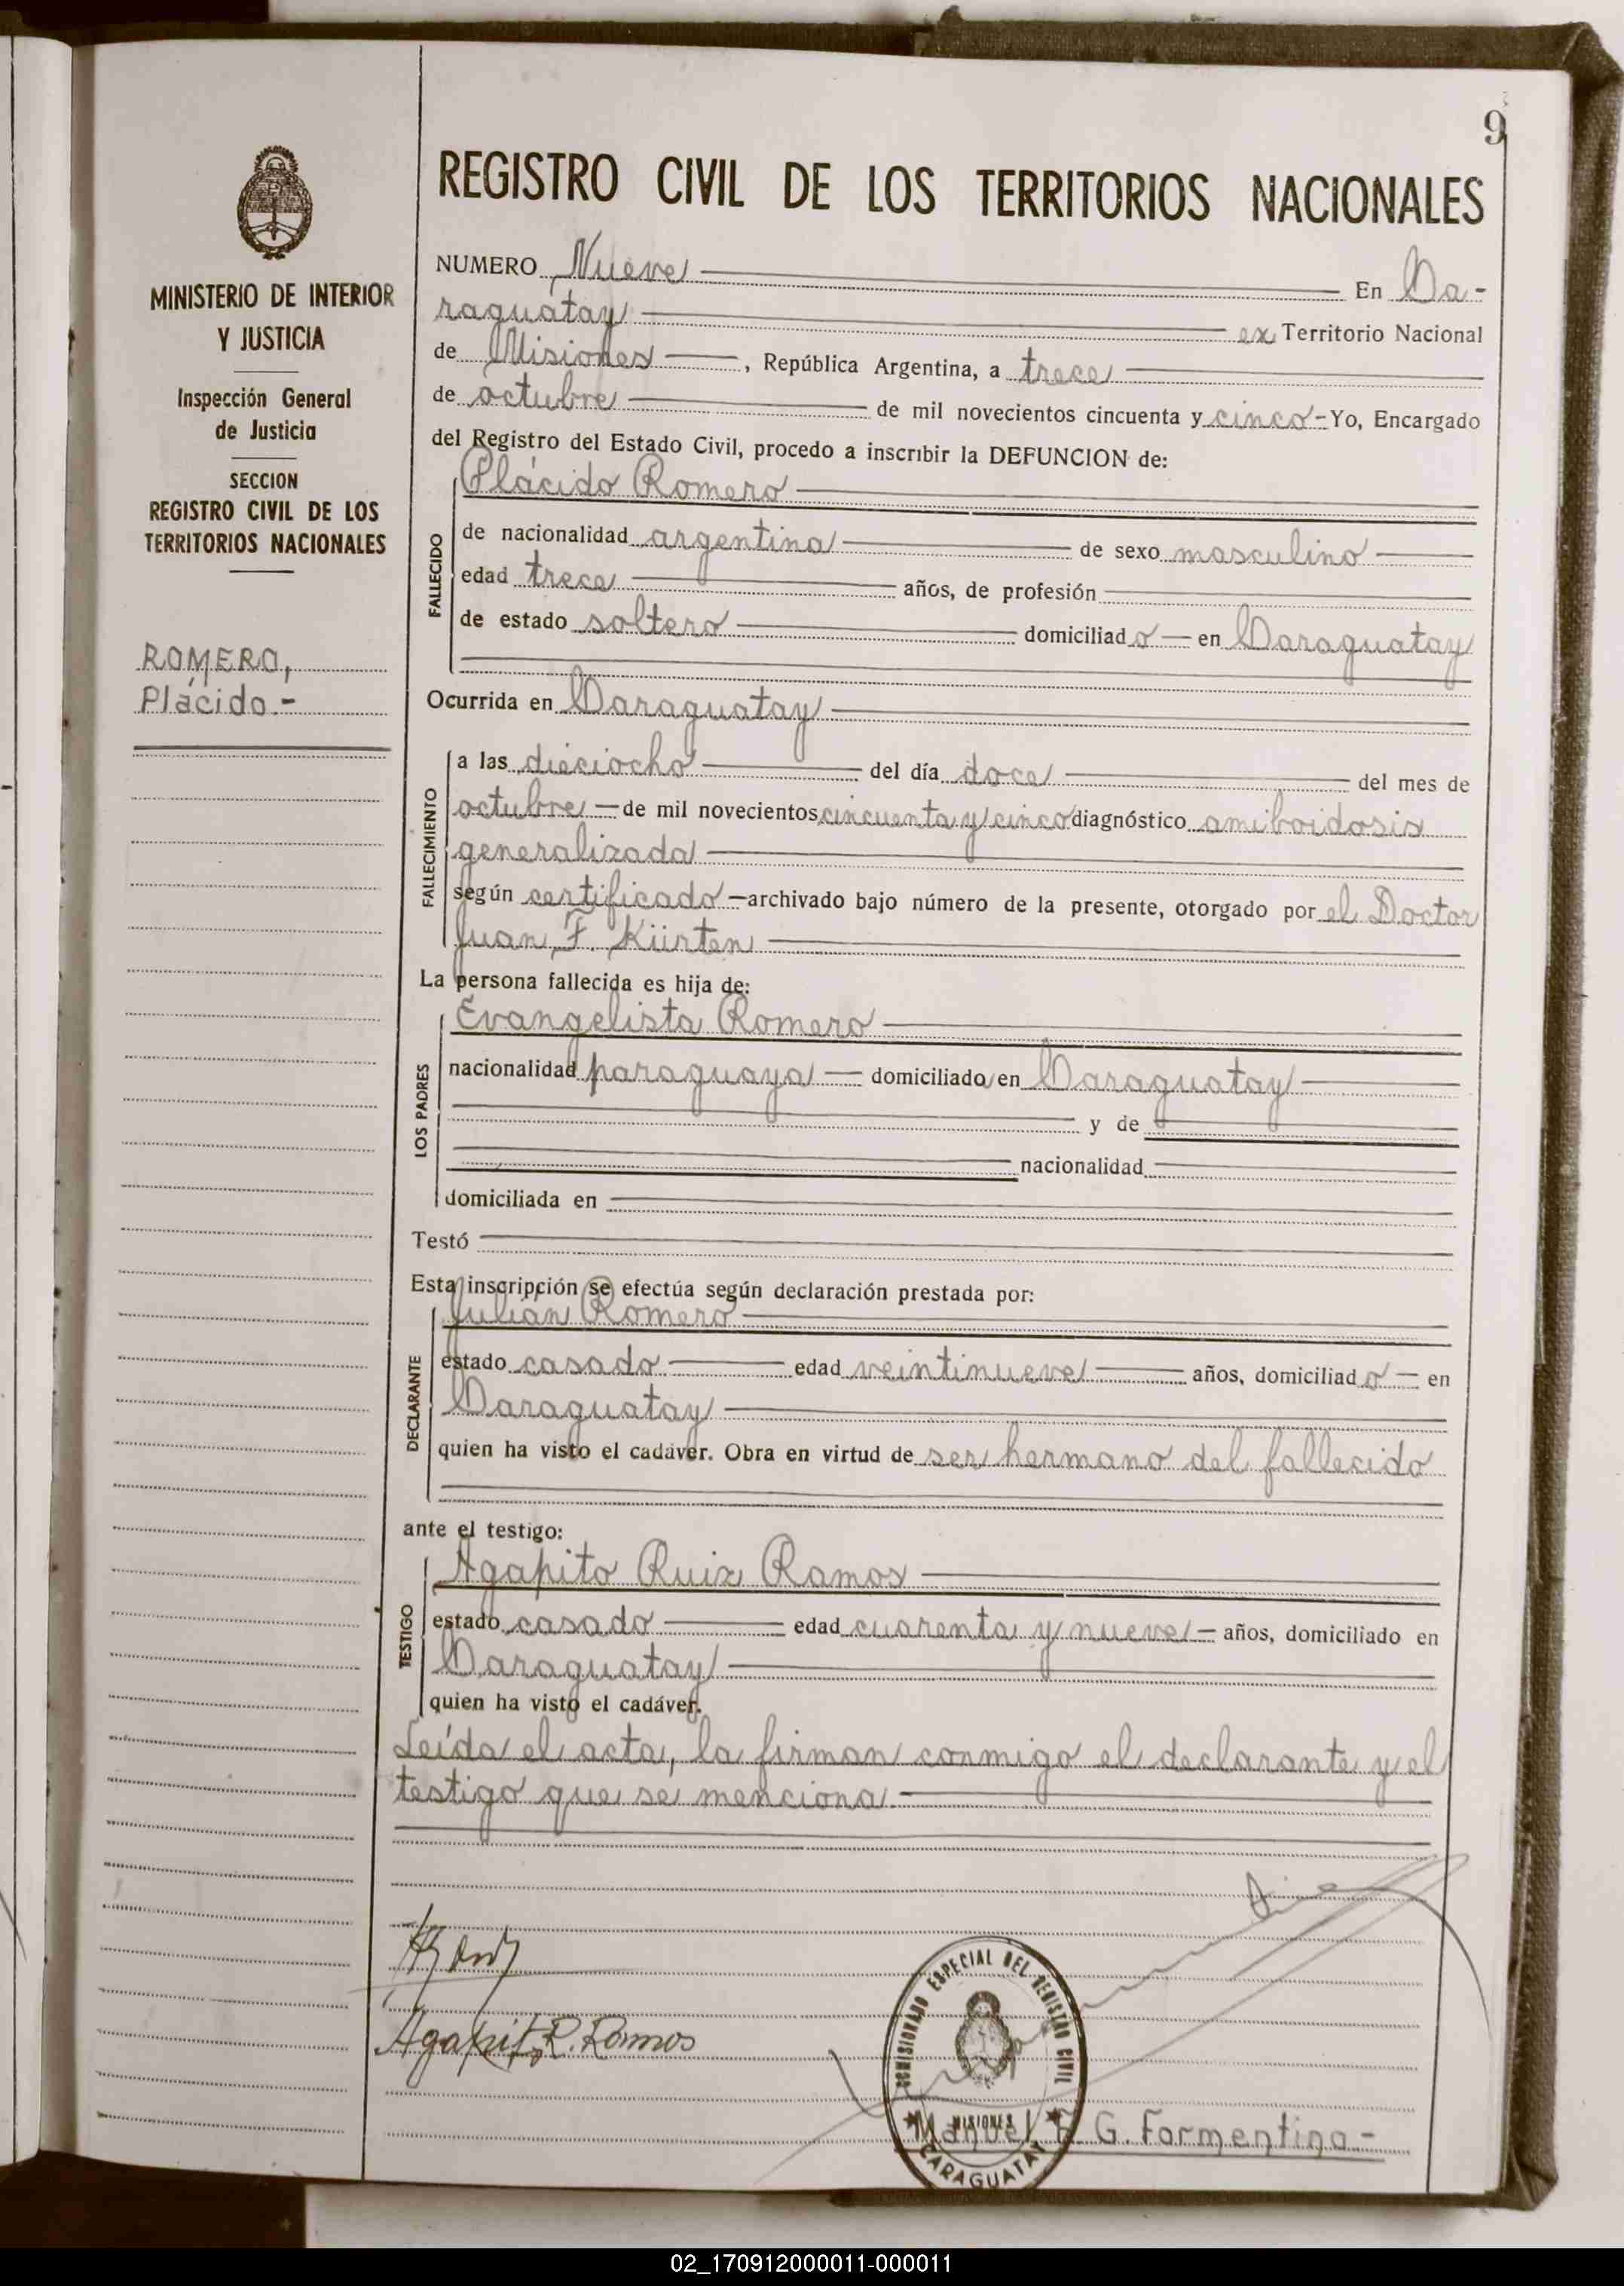 9
MINISTERIO DE INTERIOR
Y JUSTICIA
Inspección General
de Justicia
SECCION
REGISTRO CIVIL DE LOS
TERRITORIOS NACIONALES
ROMERO,
Plácido.-
REGISTRO CIVIL DE LOS TERRITORIOS NACIONALES
NUMERO Nueve En Ca-
raguatay ex Territorio Nacional
de Misiones, República Argentina, a trece
de octubre de mil novecientos cincuenta y cinco-Yo, Encargado
del Registro del Estado Civil, procedo a inscribir la DEFUNCION de:
FALLECIDO
Plácido Romero
de nacionalidad argentina de sexo masculino
edad trece años, de profesión
de estado soltero domiciliado en Caraguatay
Ocurrida en Caraguatay
FALLECIMIENTO
a las dieciocho del día doce del mes de
octubre de mil novecientos cincuenta y cinco diagnóstico amiboidosis
generalizada
según certificado archivado bajo número de la presente, otorgado por el Doctor
Juan F. Kürten
La persona fallecida es hija de:
LOS PADRES
Evangelista Romero
nacionalidad paraguaya domiciliado en Caraguatay
y de
nacionalidad
domiciliada en
Testó
Esta inscripción se efectúa según declaración prestada por:
DECLARANTE
Julián Romero
estado casado edad veintinueve años, domiciliado en
Caraguatay
quien ha visto el cadáver. Obra en virtud de ser hermano del fallecido
ante el testigo:
TESTIGO
Agapito Ruiz Ramos
estado casado edad cuarenta y nueve años, domiciliado en
Caraguatay
quien ha visto el cadáver.
Leída el acta, la firman conmigo el declarante y el
testigo que se menciona.
Agapito R. Ramos
COMISIONADO ESPECIAL DEL REGISTRO CIVIL
MISIONES
CARAGUATAY
Manuel G. Formentino.-
02_170912000011-000011